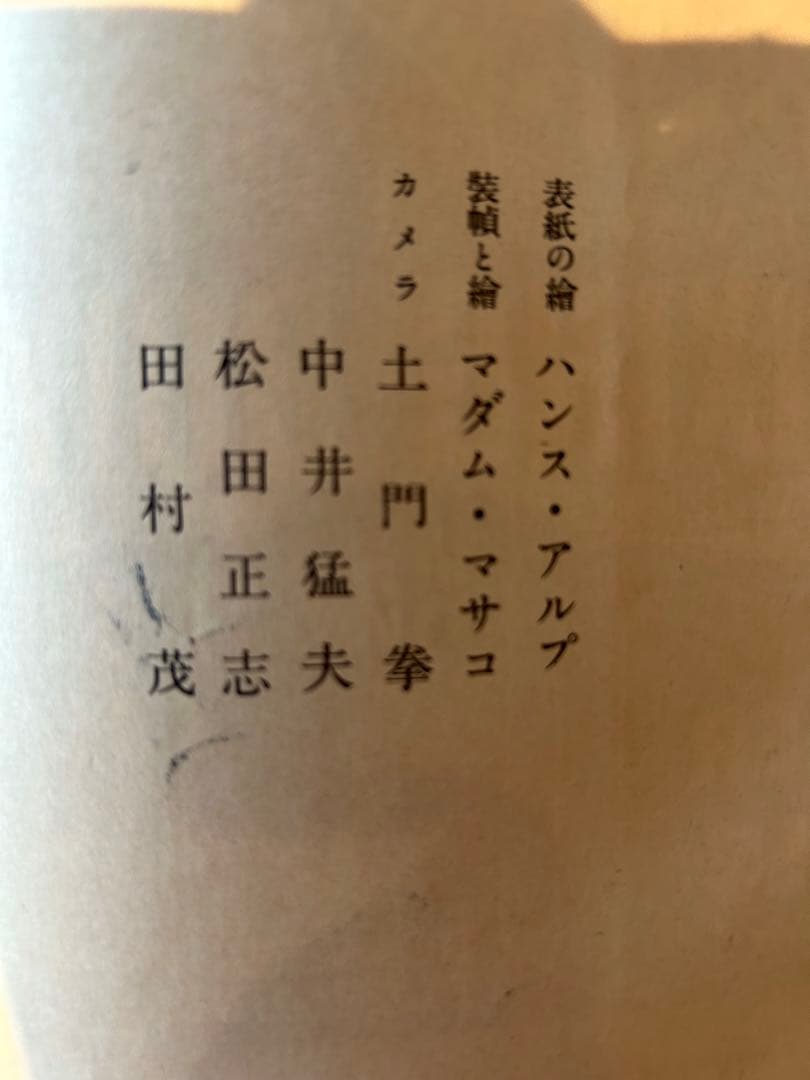 表紙の繪 ハンス・アルプ
裝幀と繪 マダム・マサコ
カメラ 土門拳
中井猛夫
松田正志
田村茂